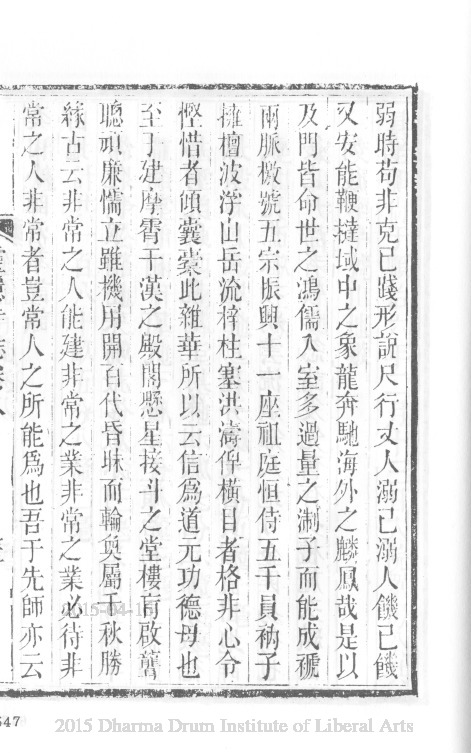 弱時苟非克己踐形說尺行丈人溺己溺人饑己饑
又安能鞭撻域中之象龍奔馳海外之麟鳳哉是以
及門皆命世之鴻儒入室多過量之淛子而能成褫
兩脈檄號五宗振興十一座祖庭恒侍五千員衲子
擁檀波浮山岳流稗柱塞洪濤俾橫目者格非心令
慳惜者傾囊橐此雜華所以云信爲道元功德母也
至于建摩霄干漢之殿閣懸星接斗之堂樓盲啟聾
聰頑廉懦立雖機用開百代昏昧而輪奐屬千秋勝
緣古云非常之人能建非常之業非常之業必待非
常之人非常者豈常人之所能爲也吾于先師亦云
2015-04-15
547
2015 Dharma Drum Institute of Liberal Arts